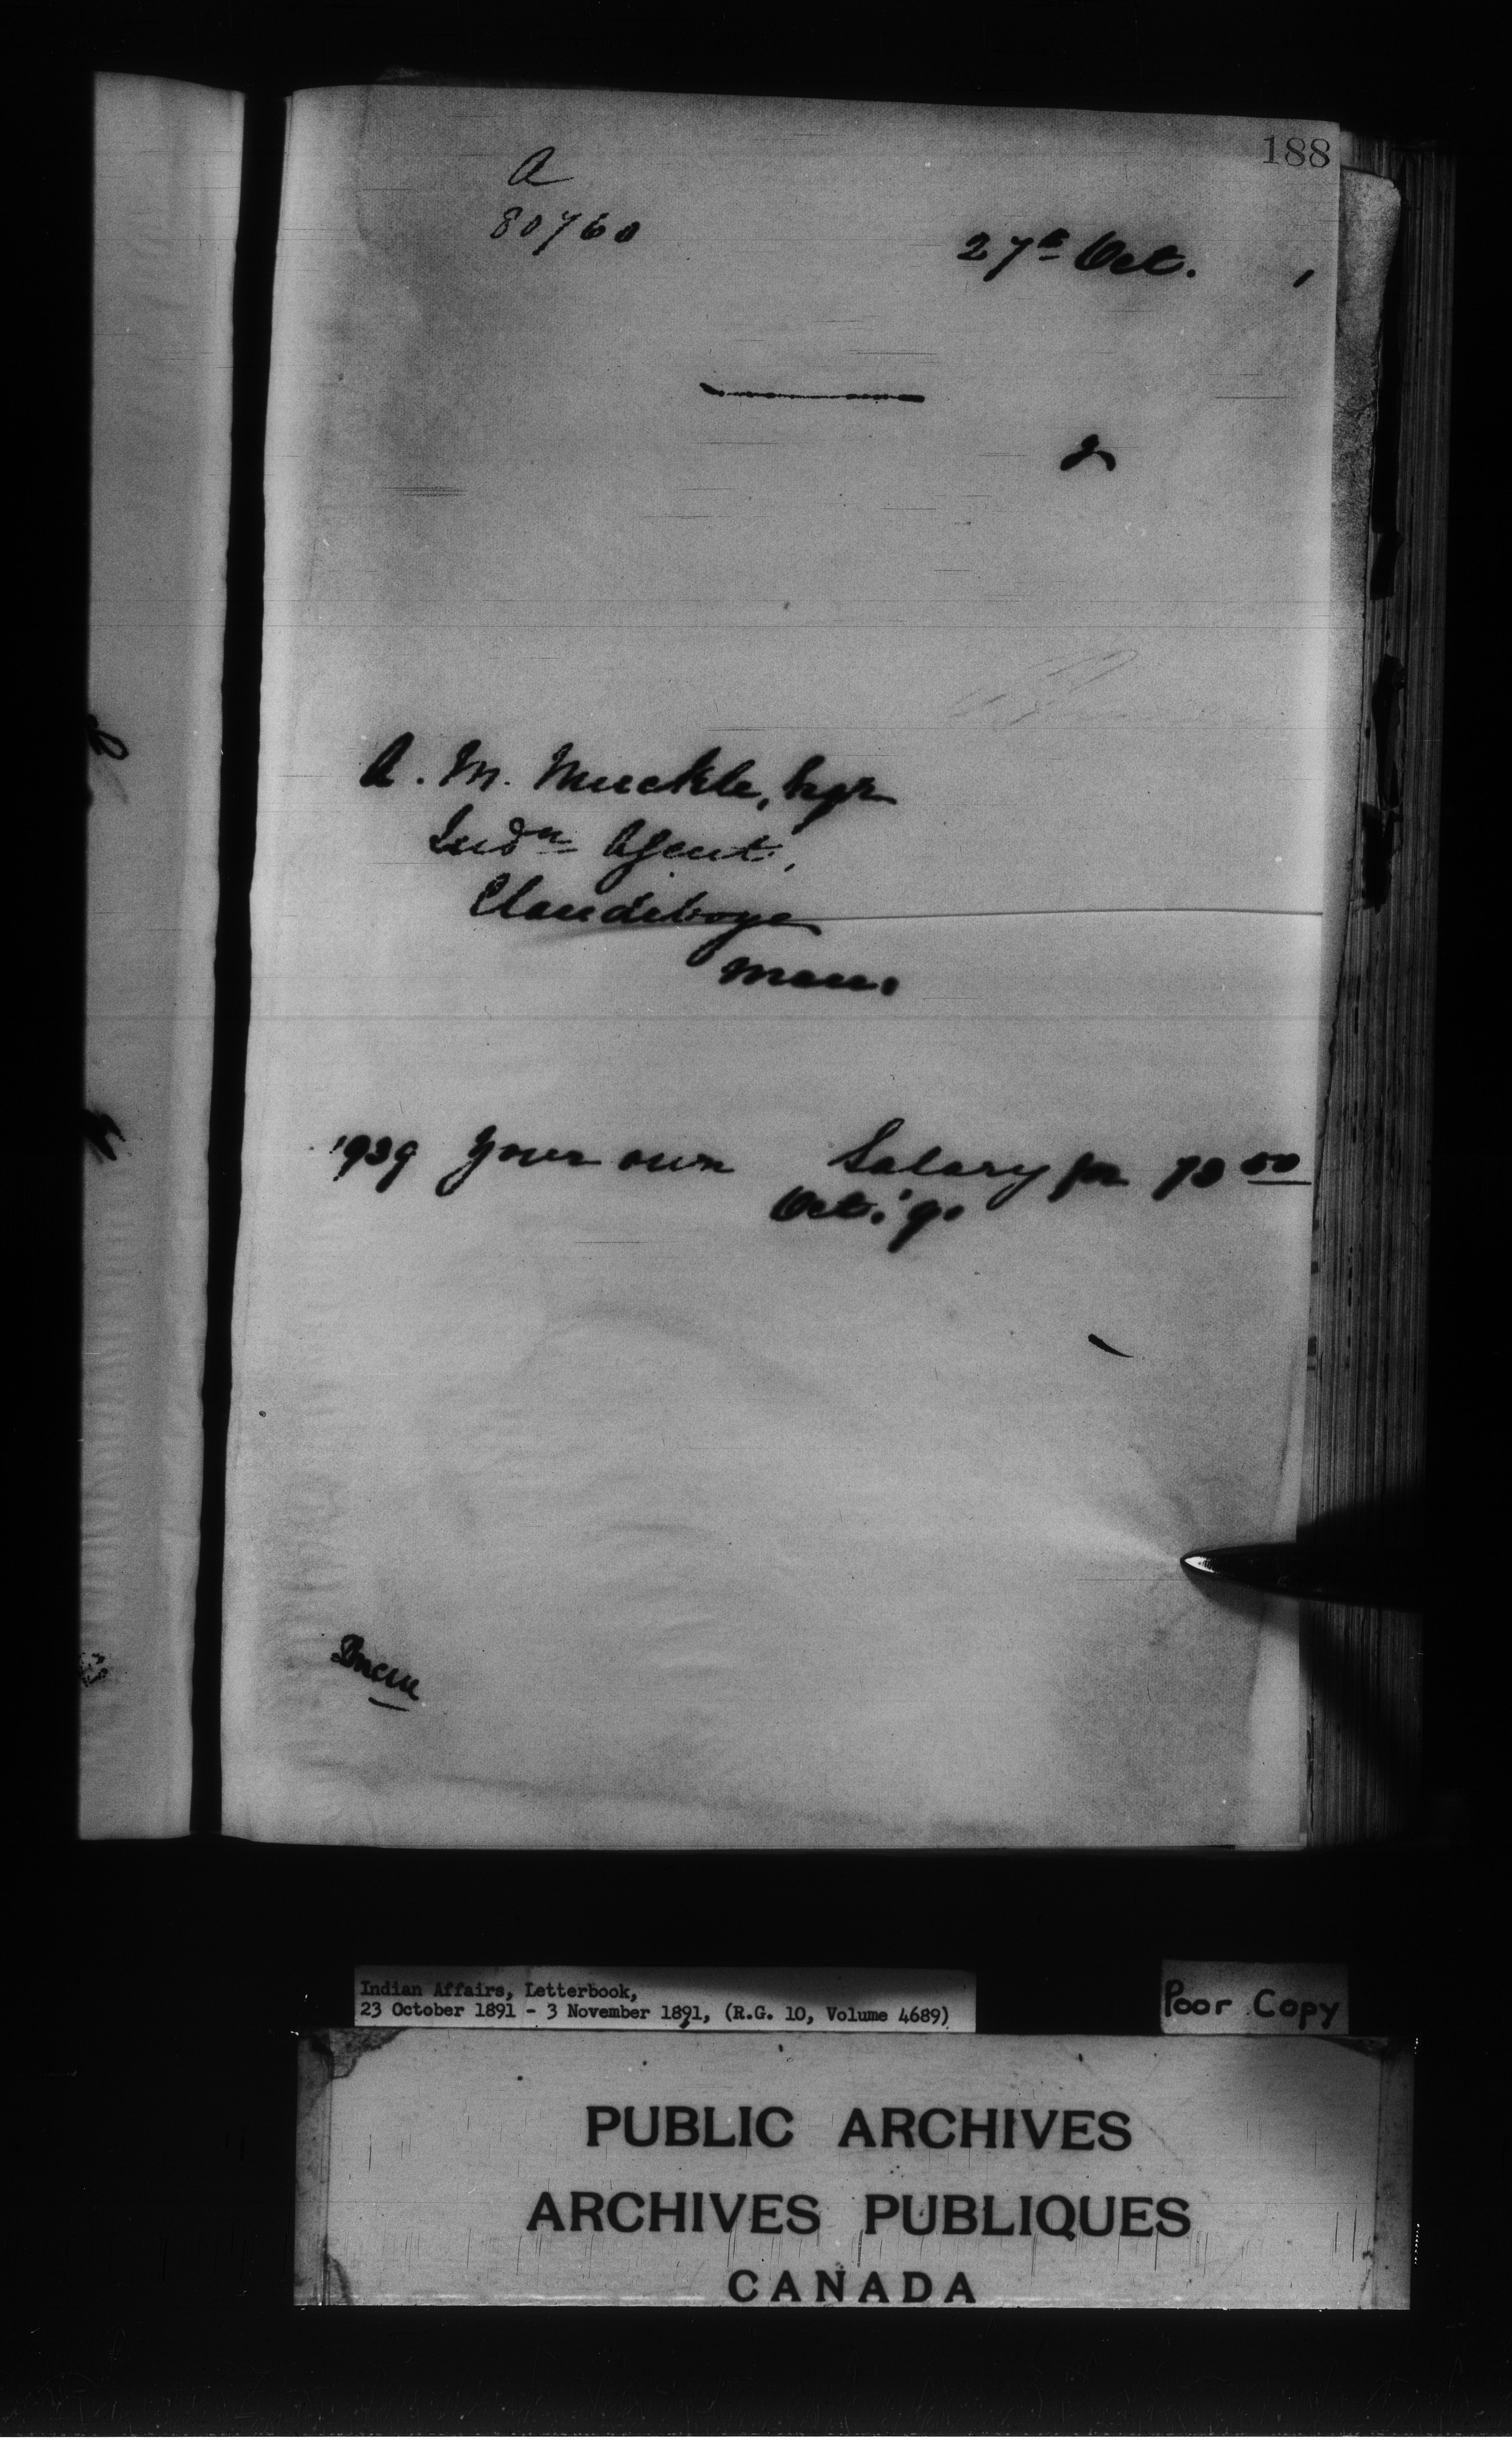 188
A
80760
27th Oct. 1
A. M. Muckle, Esqr
Indn Agent,
Clandeboye
Man.
1939 Your own Salary for 70 00
Oct. '91
Indian Affairs, Letterbook,
23 October 1891 - 3 November 1891, (R.G. 10, Volume 4689)
Poor Copy
PUBLIC ARCHIVES
ARCHIVES PUBLIQUES
CANADA